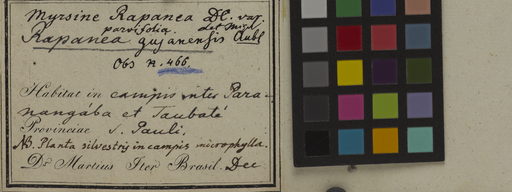 Myrsine Rapanea DC. var.
parvifolia.
Rapanea gujanensis Aubl
Obs n. 466.
Habitat in campis inter Para-
nangába et Taubaté
Provinciae S. Pauli.
NB. Planta silvestris in campis microphylla.
Dr Martius Iter Brasil. Dec